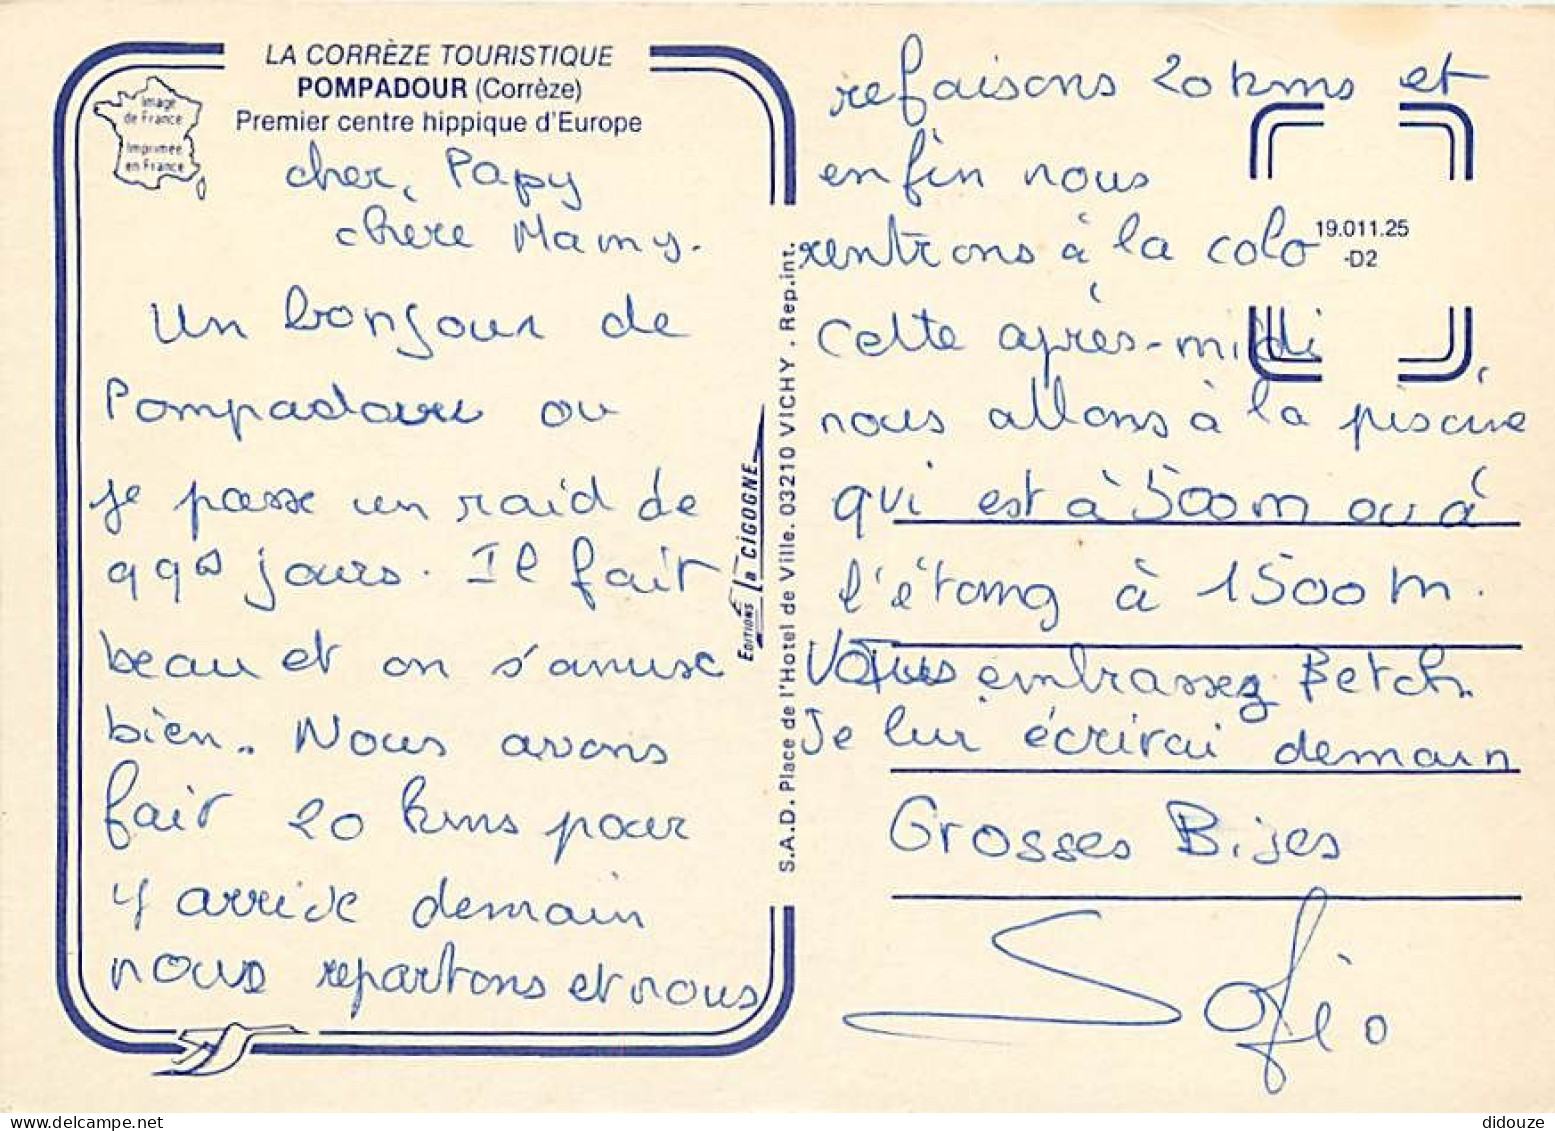 LA CORRÈZE TOURISTIQUE
POMPADOUR (Corrèze)
Premier centre hippique d'Europe
Image
de France
Imprimée
en France
cher, Papy
chère Mamy.
Un bonjour de
Pompadour ou
je passe un raid de
jours. Il fait
beau et on s'amuse
bien. Nous avons
fait 20 kms pour
y arrive demain
nous repartons et nous
Editions la CIGOGNE
S.A.D. Place de l'Hotel de Ville. 03210 VICHY . Rep.int.
refaisons 20 kms et
enfin nous
rentrons à la colo
19.011.25
-D2
Cette après-midi
nous allons à la piscine
qui est à 500m ou à
l'étang à 1500m.
Vous embrassez Betch.
Je lui écrirai demain
Grosses Bises
Sofio
didouze